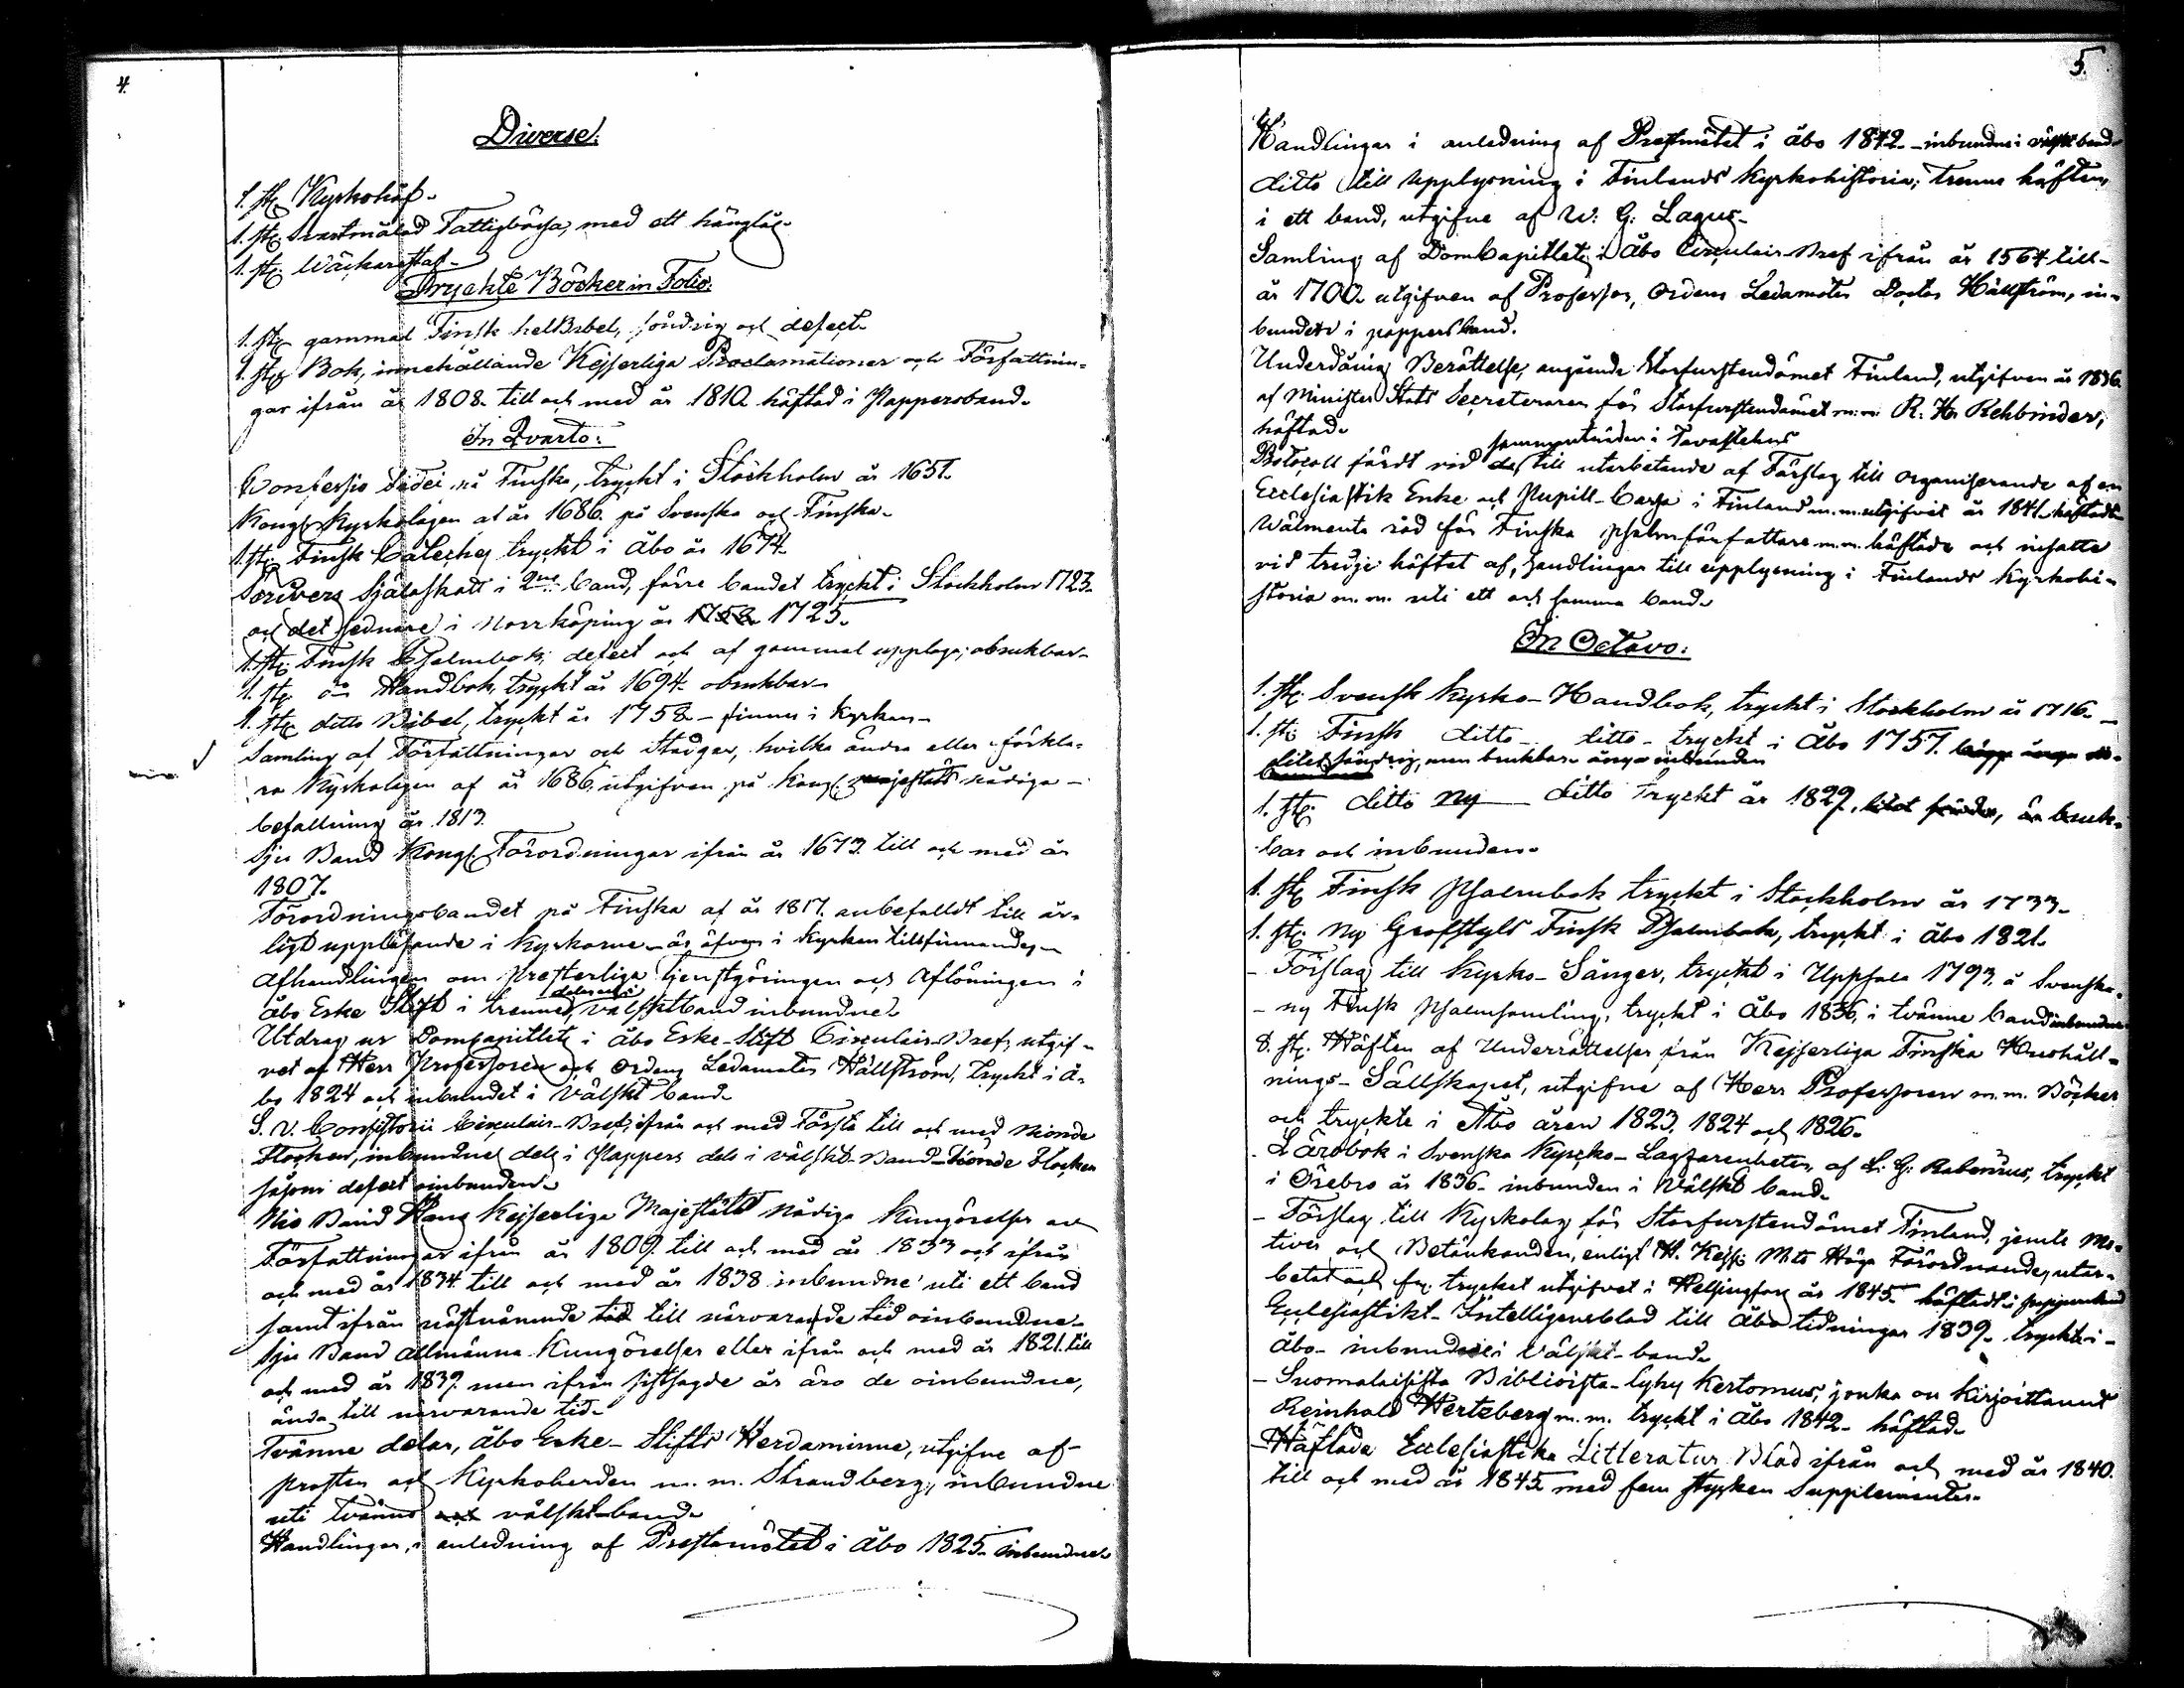 4.
Diverse.
1. st. Kyrkohåf.
1. st. Svartmålad Fattigbössa, med ett hänglås.
1. st. Wäckarestaf.
Tryckte Böcker in Folio:
1. st. gammal Finsk helBibel, söndrig och defect.
1. st. Bok, innehållande Kejserliga Proclamationer och Författnin-
gar ifrån år 1808. till och med år 1810. häftad i Pappersband.
In Qvarto:
Confessio Fidei på Finska, tryckt i Stockholm år 1651.
Kongl. Kyrkolagen af år 1686. på Svenska och Finska.
1. st. Finsk Cateches tryckt i Åbo år 1674.
Scrivers Själaskatt i 2ne band, förre bandet tryckt i Stockholm 1723.
och det sednare i Norrköping år 1758. 1725.
1. st. Finsk Psalmbok, defect och af gammal upplaga, obrukbar.
1. st. Handbok, tryckt år 1694. obrukbar.
1. st. ditto Bibel, tryckt år 1758. finnes i Kyrkan.
Samling af Författningar och Stadgar, hvilka ändra eller förkla-
ra Kyrkolagen af år 1686. utgifven på Kongl. Majestäts nådiga
befallning år 1813.
Sju Band Kongl. Förordningar ifrån år 1673. till och med år
1807.
Förordningsbandet på Finska af år 1817. anbefalldt till år-
ligt uppläsande i Kyrkorne är äfven i Kyrkan tillfinnandes
Afhandlingen om presterliga tjenstgöringen och Aflöningen i
delar uti
Åbo Erke Stift i trenne välskt band inbundne.
Utdrag ur Domcapitlets i Åbo Erke-Stift Circulair-Bref, utgif-
vet af Herr Professoren och Ordens Ledamoten Hällström, tryckt i Å-
bo 1824 och inbundet i Välskt band.
S. V. Consistorii Circulair-Bref, ifrån och med Första till och med Nionde
Flocken, inbundne dels i Pappers dels i välskt-Band. Tionde Flocken
såsom defect oinbunden.
Nio Band Hans Kejserliga Majestäts Nådiga Kungörelser och
Författningar ifrån år 1809. till och med år 1833 och ifrån
och med år 1834. till och med år 1838 inbundne uti ett band
samt ifrån nästnämnde tid till närvarande tid oinbundne.
Sju Band Allmänna Kungörelser eller ifrån och med år 1821. till
och med år 1839. men ifrån sistsagde år äro de oinbundne,
ända till närvarande tid.
Tvänne delar, Åbo Erke-Stifts Herdaminne, utgifne af
prosten och Kyrkoherden m. m. Strandberg, inbundne
uti tvänne välskt-band.
Handlingar, i anledning af Prestamötet i Åbo 1825. inbundne.
5.
Handlingar i anledning af Prestmötet i Åbo 1842. inbundne i välskt band.
ditto till upplysning i Finlands Kyrkohistoria, trenne häften,
i ett band, utgifne af W. G. Lagus.
Samling af DomCapitlets i Åbo Circulair Bref ifrån år 1564 till
år 1700. utgifven af Professor, Ordens Ledamoten Doctor Hällström, in-
bunden i pappersband.
Underdånig Berättelse, angående Storfurstendömet Finland, utgifven år 1836.
af Minister Stats Secreteraren för Storfurstendömet m. m R. H. Rehbinder,
häftad.
sammanträden i Tavastehus
Protocoll fördt vid de till utarbetande af Förslag till organiserande af en
Ecclesiastik Enke och Pupill-Cassa i Finland m. m. utgifvet år 1841. häftadt
Wälmenta råd för Finska psalmförfattare m. m. häftade och insatte
vid tredje häftet af, handlingar till upplysning i Finlands Kyrkohi-
storia m. m. uti ett och samma band.
In Octavo:
1. st. Svensk Kyrko-Handbok, tryckt i Stockholm år 1716.
1. st. Finsk ditto ditto tryckt i Åbo 1757.
litet söndrig, men brukbar
1. st. ditto Ny ditto Tryckt år 1829. litet är bruk-
bar och inbunden.
1. st. Finsk Psalmbok tryckt i Stockholm år 1733.
1. st. Ny Grofstyls Finsk Psalmbok, tryckt i Åbo 1821.
- Förslag till Kyrko-Sånger, tryckt i Uppsala 1793. å Svenska.
- ny Finsk psalmsamling, tryckt i Åbo 1836, i tvänne band inbundne
8. st. Häften af Underrättelser från Kejserliga Finska Hushåll-
nings-Sällskapet, utgifne af Herr Professoren m. m. Böcker
och tryckte i Åbo åren 1823, 1824 och 1826.
Lärobok i Svenska Kyrko-Lagfarenheten, af L. G. Rabenius, tryckt
i Örebro år 1836. inbunden i Välskt band.
- Förslag till Kyrkolag för Storfurstendömet Finland, jemte Mo-
tiver och Betänkanden, enligt H. Kejs. M:ts Höga Förordnande, utar-
betat och fr. trycket utgifvet i Helsingfors år 1845. häftadt i pappersband
Ecclesiastikt-Intelligensblad till Åbo tidningar 1839. tryckt i
Åbo- inbundne i Välskt-band.
- Suomalaisista Biblioista-lyhy Kertomus, jonka on Kirjoittanut
Reinhold Hertzberg m. m. tryckt i Åbo 1842. häftad.
- Häftade Ecclesiastika Litteratur Blad ifrån och med år 1840.
till och med år 1845 med fem stycken Supplementer.